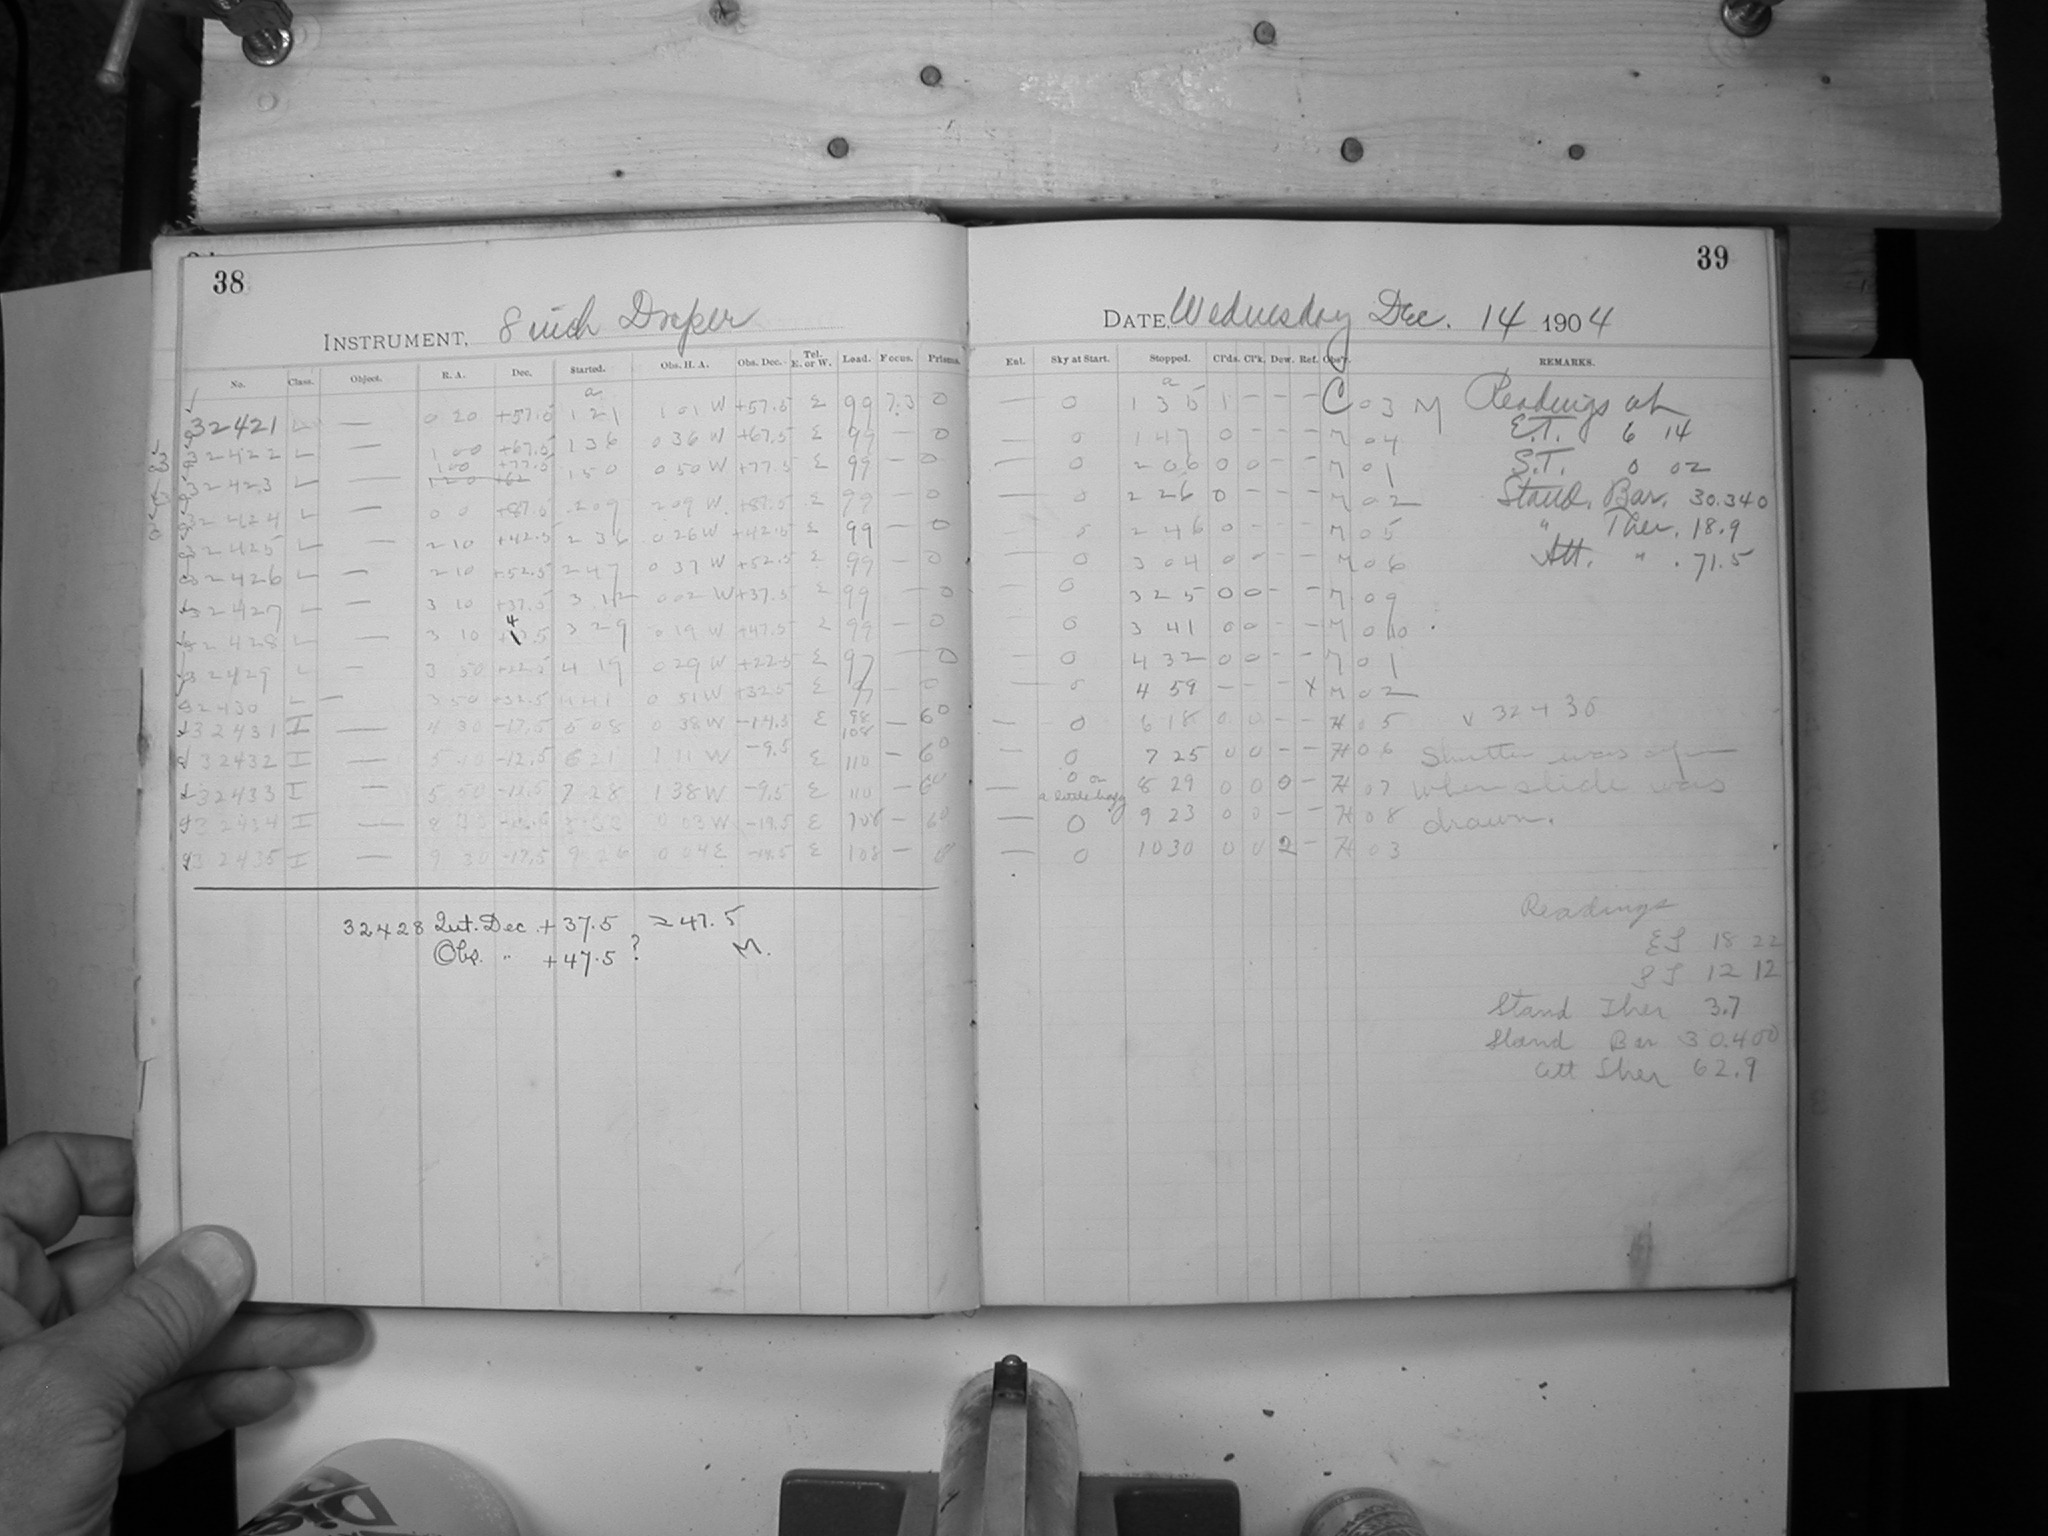 38
INSTRUMENT, 8 inch Draper
No. Class. Object. R. A. Dec. Started. Obs. H. A. Obs. Dec. Tel. E. or W. Lead. Focus. Prisms.
a
32421 L — 0 20 +57.5 1 21 1 01 W +57.5 E 99 7.3 0
32422 L — 1 00 +67.5 1 36 0 36 W +67.5 E 99 — 0
32423 L — 1 00 +77.5 1 50 0 50 W +77.5 E 99 — 0
32424 L — 0 0 +87.5 2 09 2 09 W +87.5 E 99 — 0
32425 L — 2 10 +42.5 2 36 0 26 W +42.5 E 99 — 0
32426 L — 2 10 +52.5 2 47 0 37 W +52.5 E 99 — 0
32427 L — 3 10 +37.5 3 12 0 02 W +37.5 E 99 — 0
32428 L — 3 10 +47.5 3 29 0 19 W +47.5 E 99 — 0
32429 L — 3 50 +22.5 4 19 0 29 W +22.5 E 97 — 0
32430 L — 3 50 +32.5 4 41 0 51 W +32.5 E 97 — 0
32431 I — 4 30 -17.5 5 08 0 38 W -14.5 E 98 108 — 60
32432 I — -12.5 6 21 1 11 W -9.5 E 110 — 60
32433 I — 5 50 -12.5 7 28 1 38 W -9.5 E 110 — 60
32434 I — 0 03 W -19.5 E 108 — 60
32435 I — 9 30 -17.5 9 26 0 04 E E 108 —
32428 Int. Dec. + 37.5 = 47.5
Obs. " + 47.5 ? M.
39
DATE, Wednesday Dec. 14 1904
Ent. Sky at Start. Stopped. Cl'ds. Cl'k. Dew. Ref. Obs'r. REMARKS.
a
— 0 1 35 1 - - - C 03 M
— 0 1 47 0 - - - M 04
— 0 2 06 0 0 - - M 01
— 0 2 26 0 - - - M 02
0 2 46 0 - - - M 05
— 0 3 04 0 0 - - M 06
0 3 25 0 0 - - M 09
0 3 41 0 0 - - M 010
— 0 4 32 0 0 - - M 01
— 0 4 59 - - - X M 02
— 0 6 18 0 0 - - H 05
— 0 7 25 0 0 - - H 06
— 0 or a little hazy 8 29 0 0 0 - H 07
— 0 9 23 0 0 - - H 08
— 0 10 30 0 0 2 - H 03
Readings at
E.T. 6 14
S.T. 0 02
Stand. Bar. 30.340
" Ther. 18.9
Att. " . 71.5
v 32430
Shutter was open
when slide was
drawn.
Readings
ET 18 22
ST 12 12
Stand Ther 3.7
Stand Bar 30.400
Att Ther 62.9